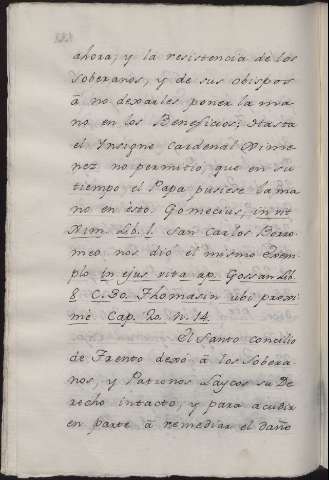 ahora, y la resistencia de los
soberanos, y de sus obispos
à no dexarles poner la ma
no en los Beneficios; Hasta
el Ynsigne Cardenal Xime
nez no permitio, que en su
tiempo el Papa pusiese la ma
no en èsto. Gomecius, in vit
Xim. Lib. 1. San Carlos Borro
meo nos diò el mismo Exem
plo in ejus vita ap. Gossan Lib.
8 C. 30. Thomasin ubi proxi
mè Cap. 20. N. 14.
El Santo concilio
de Trento dexò à los Sobera
nos, y Patronos Laycos su De
recho intacto, y para acudir
en parte à remediar el daño